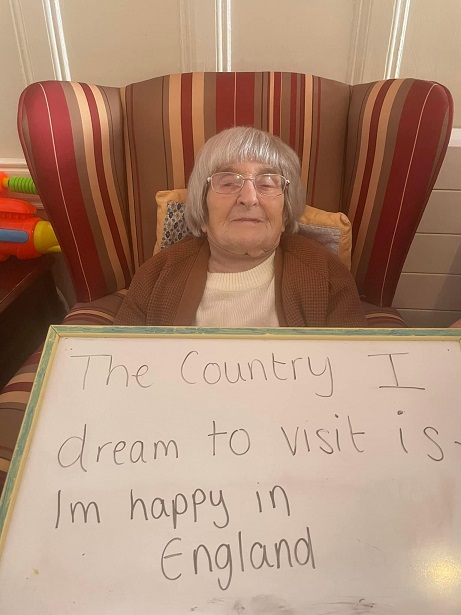 The Country I
dream to visit is.
Im happy in
England